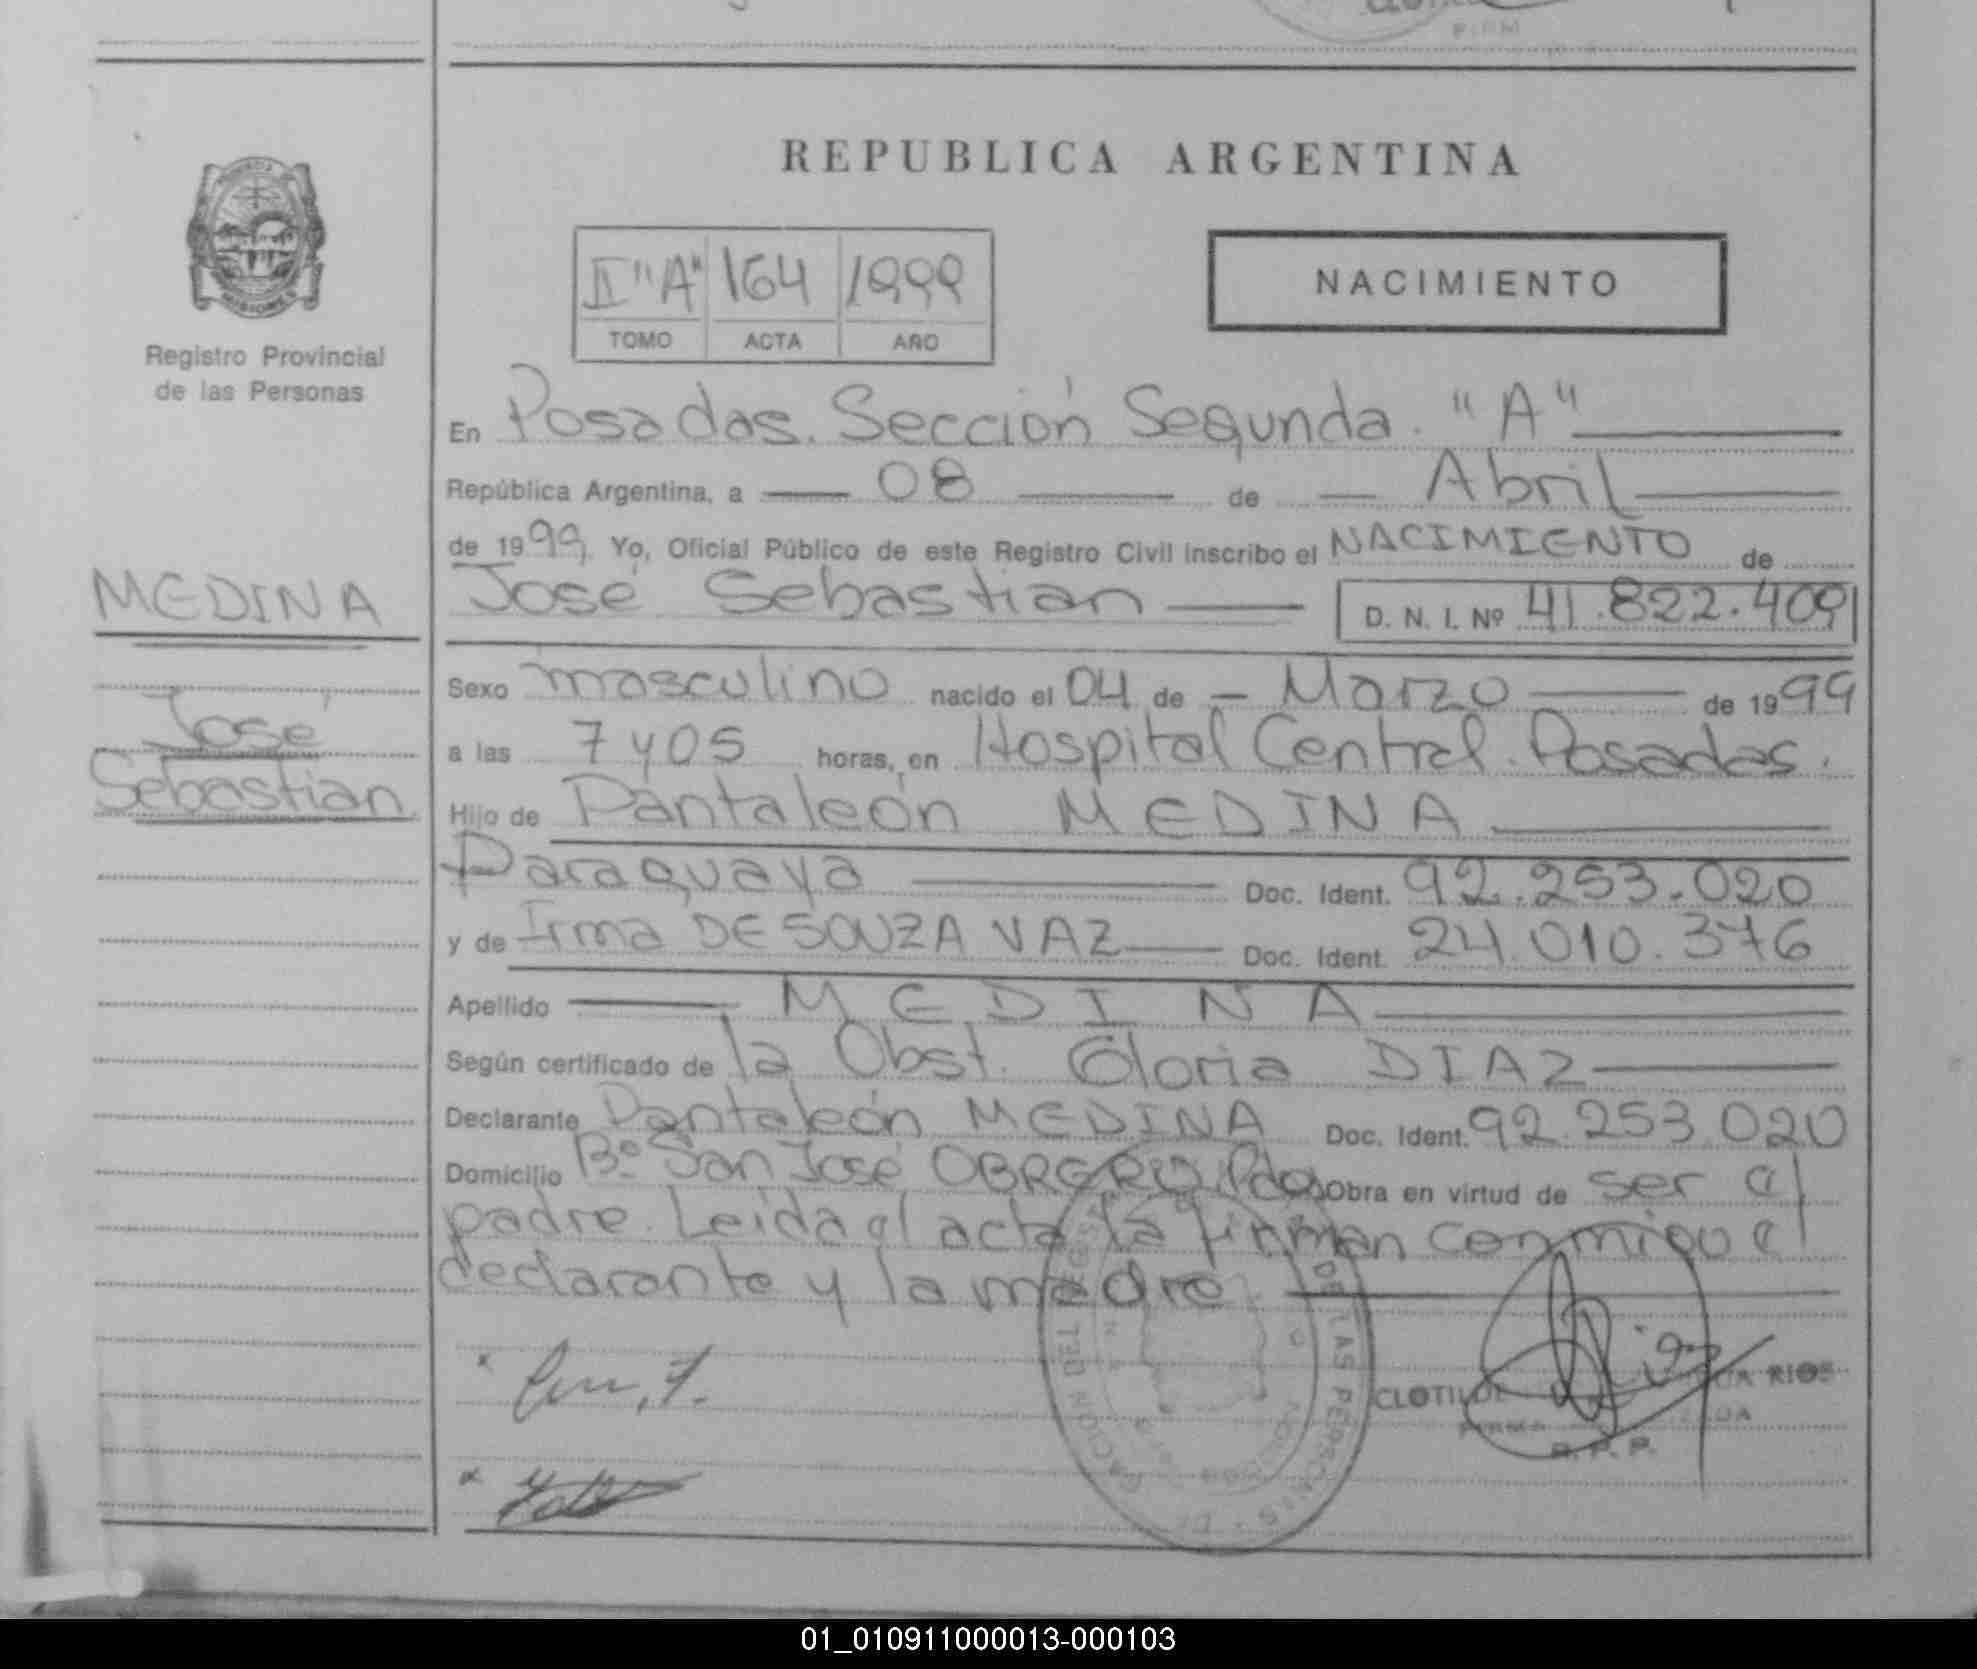 REPUBLICA ARGENTINA
II "A" 164 1999
TOMO ACTA AÑO
NACIMIENTO
Registro Provincial
de las Personas
En Posadas. Sección Segunda. "A"
República Argentina, a 08 de Abril
de 1999. Yo, Oficial Público de este Registro Civil inscribo el NACIMIENTO de
MEDINA
José Sebastian D. N. I. Nº 41.822.409
Sexo masculino nacido el 04 de Marzo de 1999
José
Sebastian.
a las 7 y 05 horas, en Hospital Central. Posadas.
Hijo de Pantaleón MEDINA
Paraguaya Doc. Ident. 92.253.020
y de Irma DE SOUZA VAZ Doc. Ident. 24.010.376
Apellido MEDINA
Según certificado de la Obst. Gloria DIAZ
Declarante Pantaleón MEDINA Doc. Ident. 92.253.020
Domicilio Bº San José OBRERO. Pdas Obra en virtud de ser el
padre. Leida el acta la firman conmigo el
declarante y la madre.
DE LAS PERSONAS
CLOTILDE RIOS
R. P. P.
01_010911000013-000103